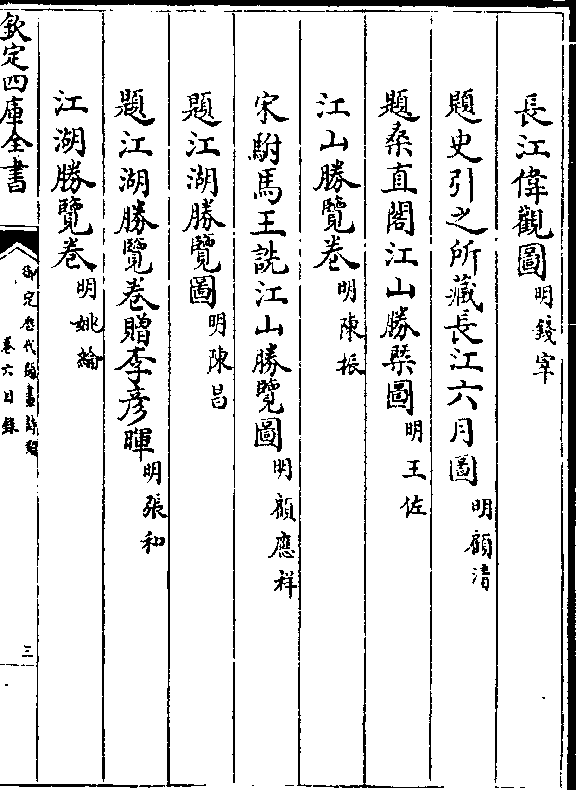 長江偉觀圖明錢宰
題史引之所藏長江六月圖明顧清
題桑直閣江山勝槩圖明王佐
江山勝覽卷明陳振
宋駙馬王詵江山勝覽圖明顧應祥
題江湖勝覽圖明陳昌
題江湖勝覽卷贈李彦暉明張和
江湖勝覽卷明姚綸
欽定四庫全書
御定歴代題畫詩類
卷六目錄
三